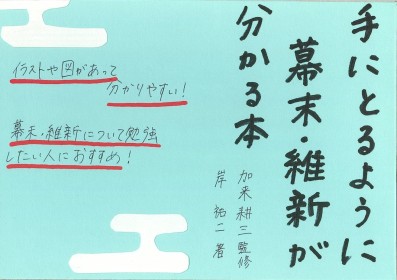 手にとるように
幕末・維新が
分かる本
加来耕三 監修
岸 祐二 著
イラストや図があって
分かりやすい!
幕末・維新について勉強
したい人におすすめ!